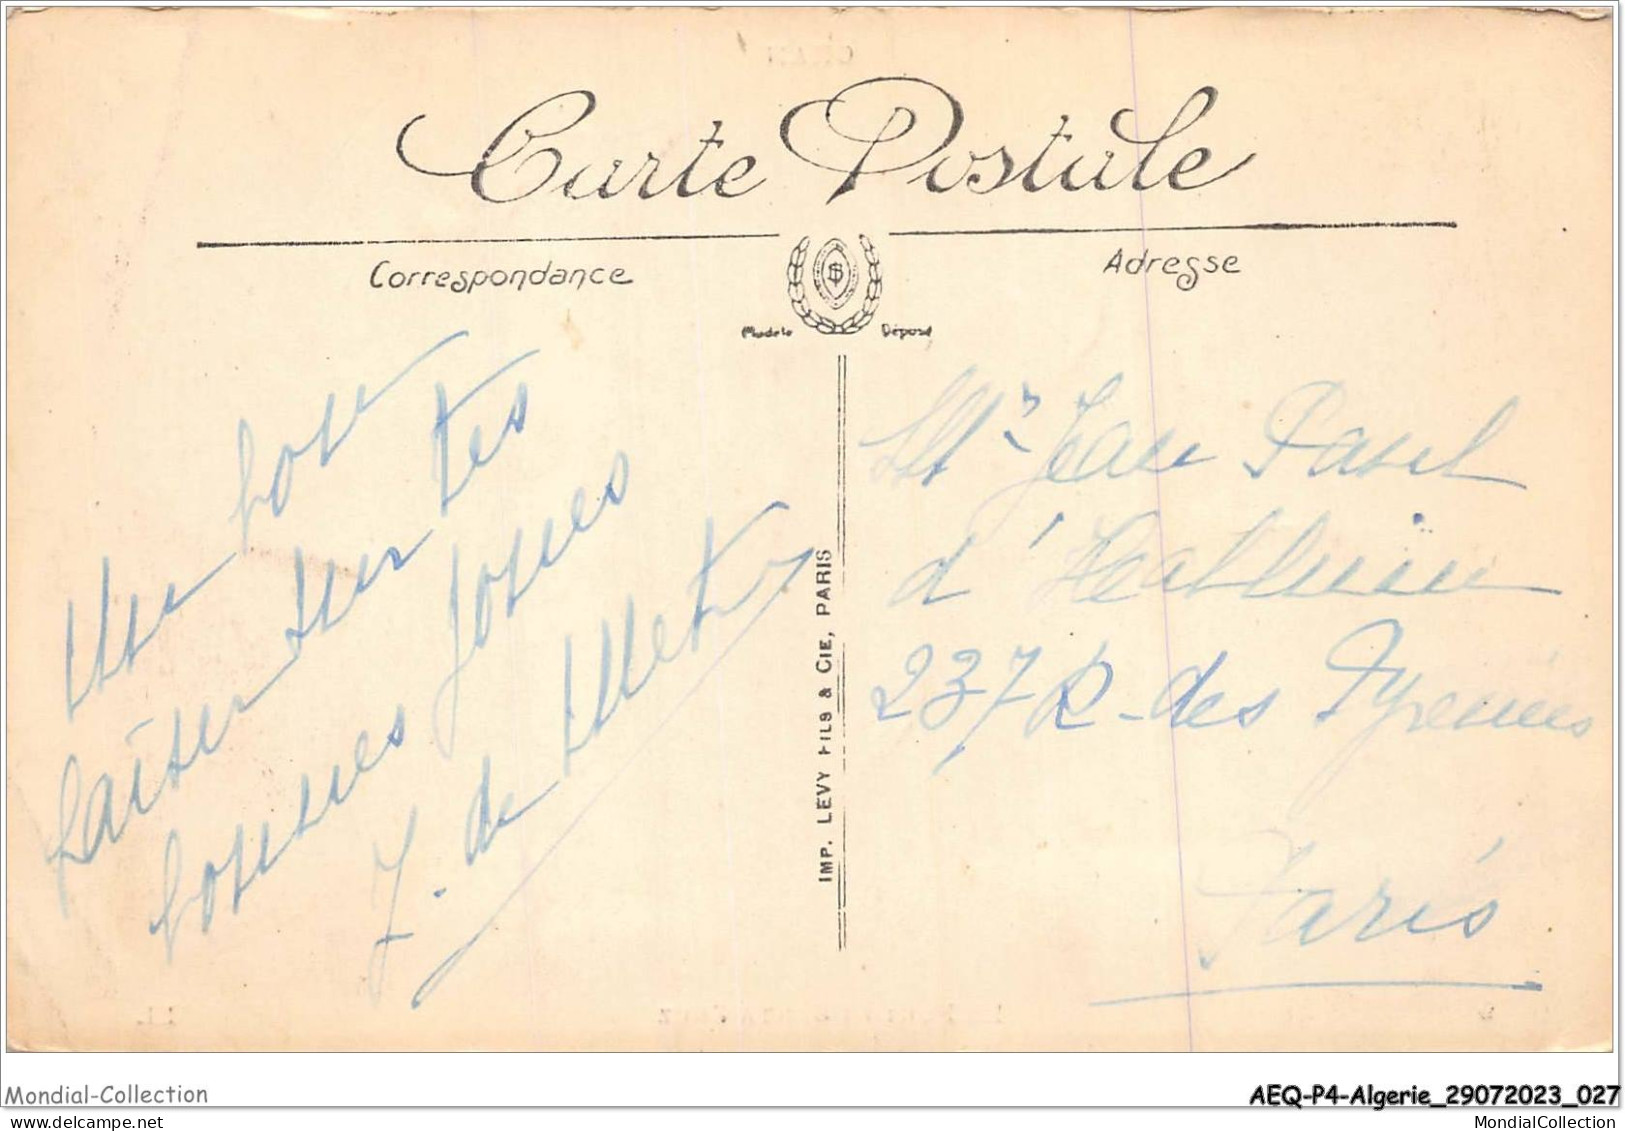 Carte Postale
Correspondance
Adresse
Modèle Déposé
Un bon
baiser sur tes
bonnes joues
J. de
IMP. LEVY FILS & CIE, PARIS
Mr Jean Paul
d'
237 R. des Pyrénées
Paris
Mondial-Collection
AEQ-P4-Algerie_29072023_027
MondialCollection